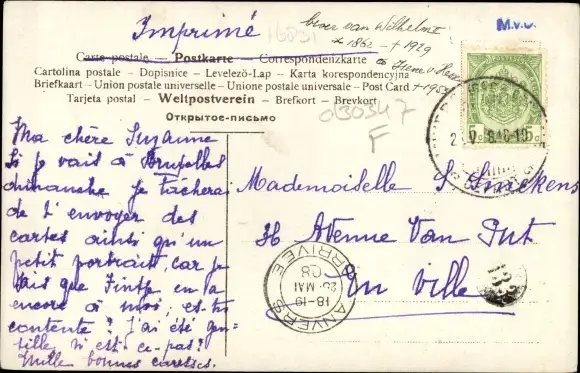 Imprimé
16031
broer van Wilhelm
* 1862 - + 1929
M.v.u.
Carte postale — Postkarte — Correspondenzkarte
Cartolina postale - Dopisnice - Levelezö-Lap - Karta korespondencyjna
Briefkaart - Union postale universelle - Unione postale universale - Post Card
Tarjeta postal - Weltpostverein - Brefkort - Brevkort
Открытое-письмо
030347
F
Ma chère Suzanne
Si je vais à Bruxelles
dimanche je tâcherai
de t'envoyer des
cartes ainsi qu'un
petit portrait, car je
sais que en a
encore à moi, es-tu
contente? J'ai été gen=
tille, n'est-ce-pas?
Mille bonnes caresses.
Mademoiselle S Smekens
36 Avenue Van Put
En Ville
ANVERS
18-19
25 MAI
08
ARRIVEE
133